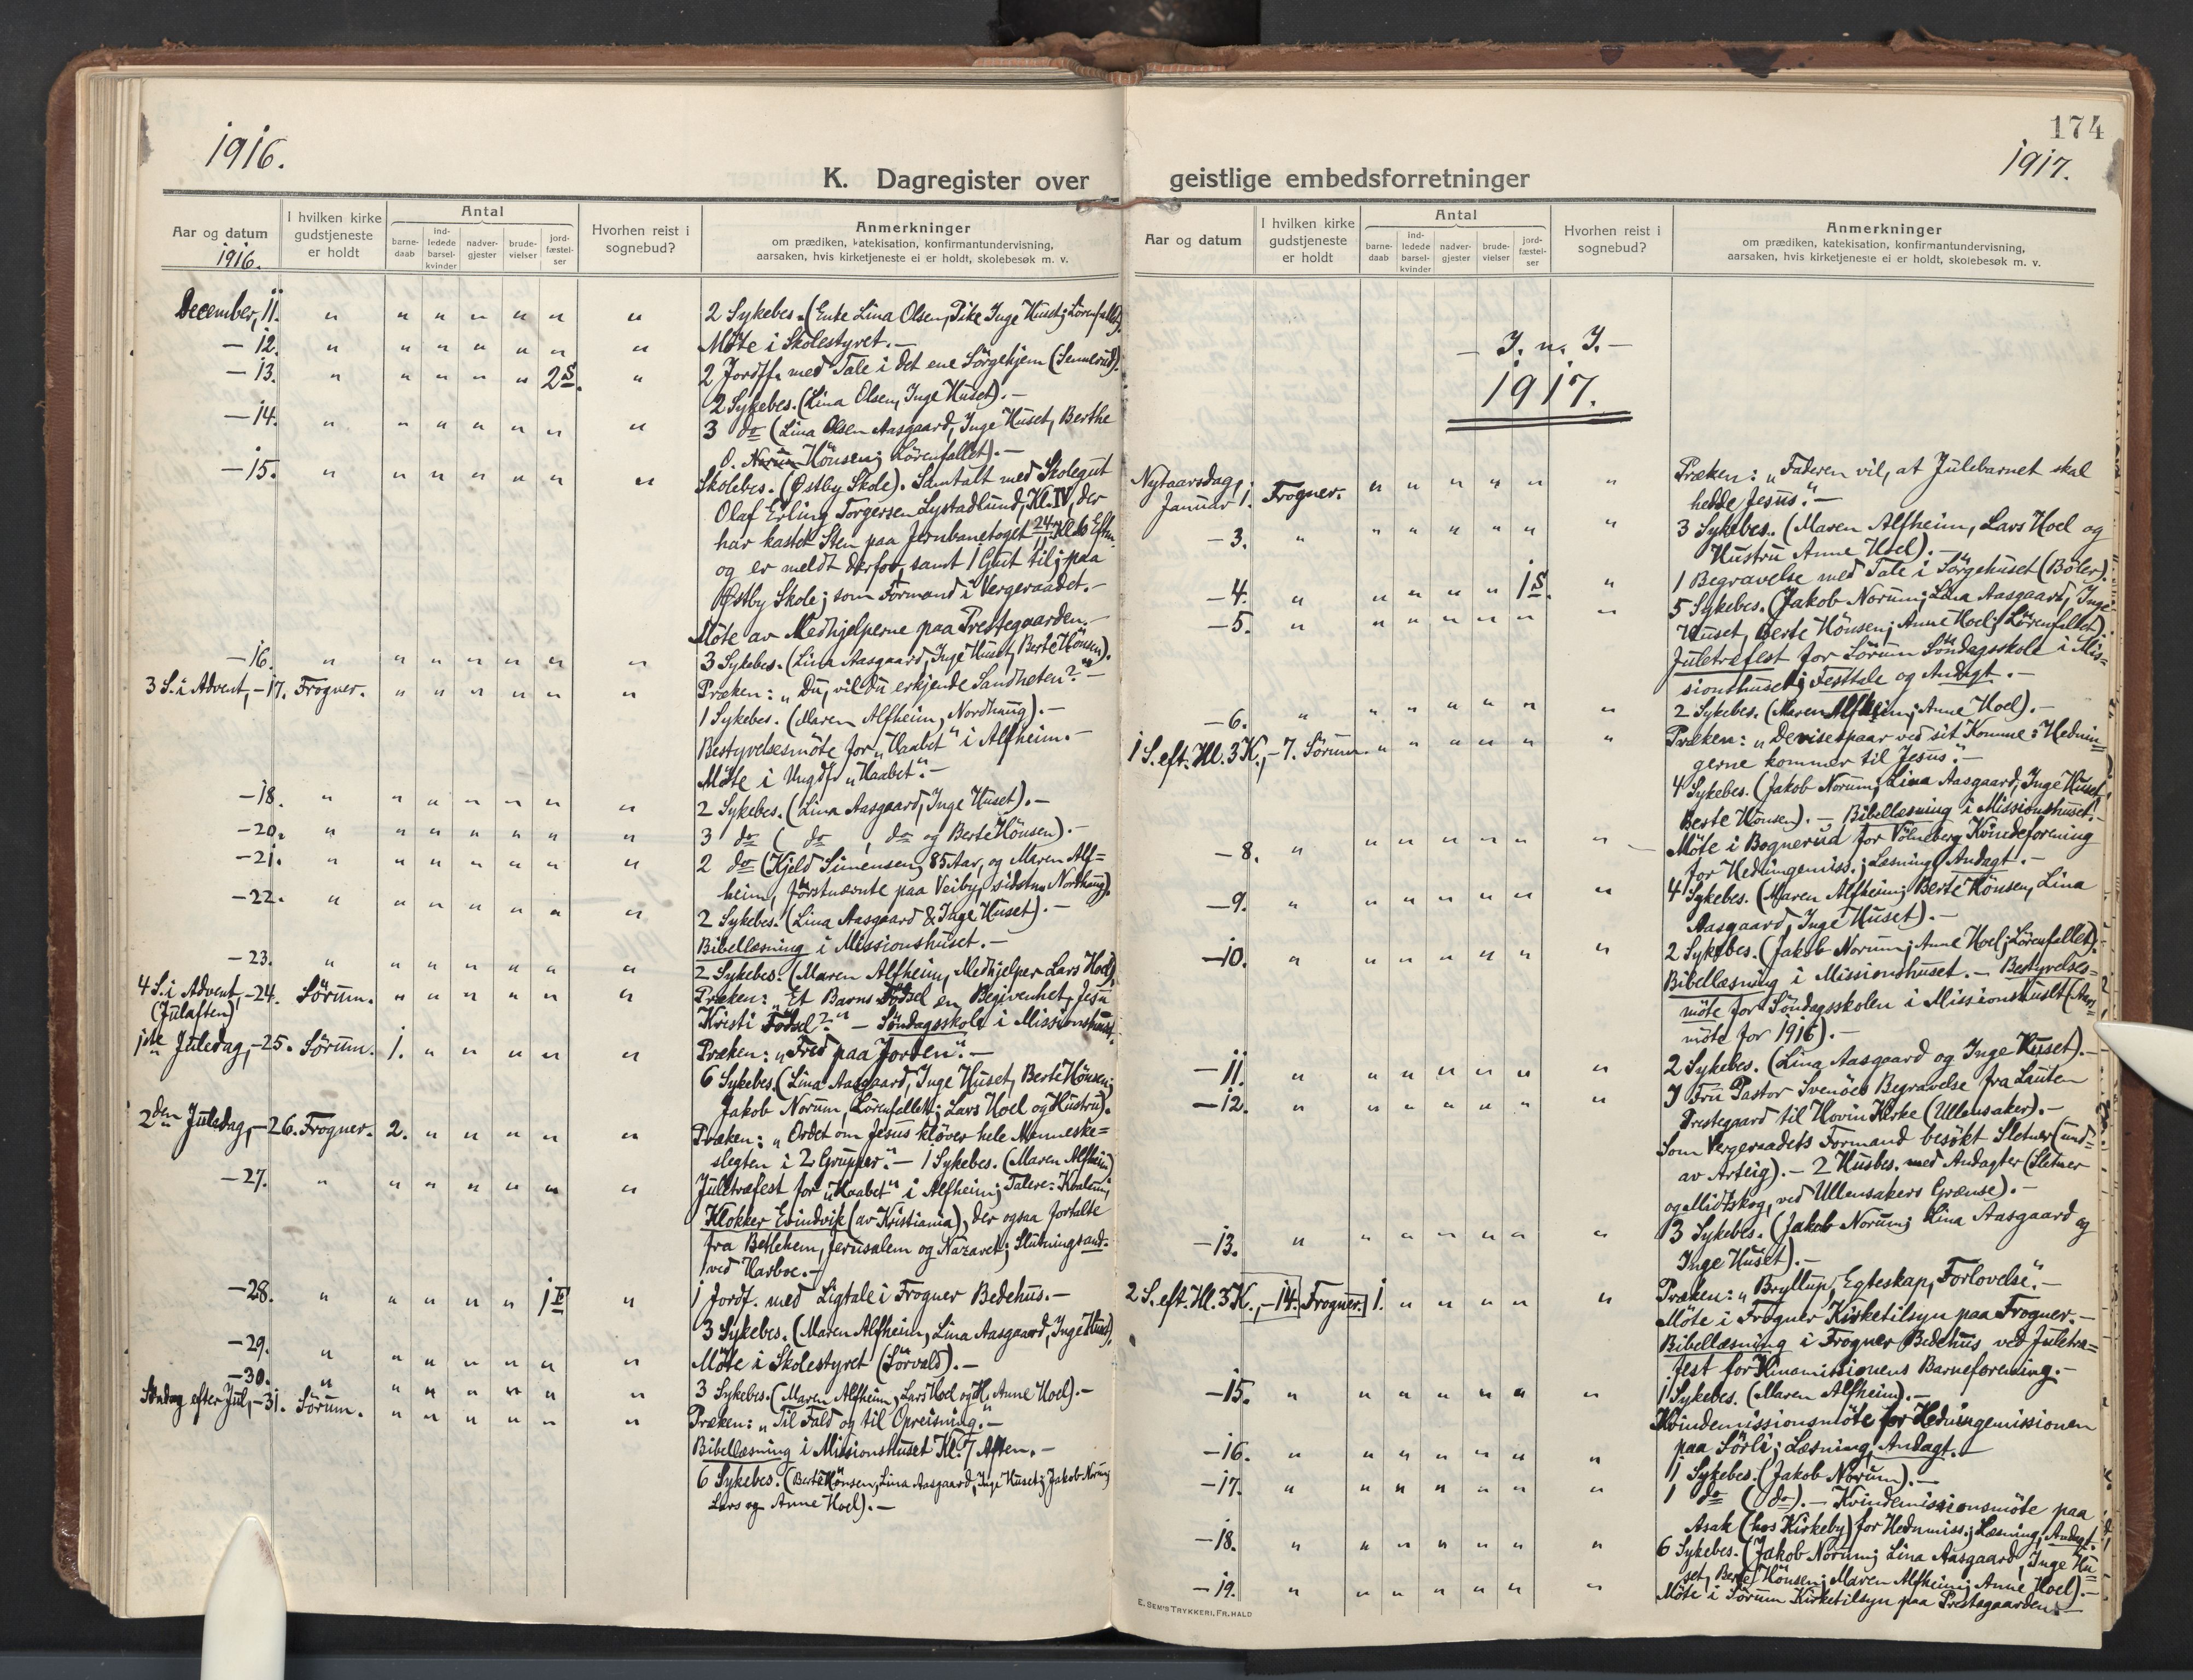 1916.
K. Dagregister over
Aar og datum
1916.
I hvilken kirke
gudstjeneste
er holdt
Antal
barne-
daab
ind-
ledede
barsel-
kvinder
nadver-
gjester
brude-
vielser
jord-
fæstel-
ser
Hvorhen reist i
sognebud?
Anmerkninger
om prædiken, katekisation, konfirmantundervisning,
aarsaken, hvis kirketjeneste ei er holdt, skolebesøk m. v.
December, 11. " " " " " " " 2 Sykebes. (Enke Lina Olsen, Pike Inge Huset; Lörenfallet).
— 12. " " " " " " " Möte i Skolestyret. —
— 13. " " " " " 2 S. " 2 Jordf. med Tale i det ene Sörgehjem (Sennerud).
2 Sykebes. (Lina Olsen, Inge Huset). —
— 14. " " " " " " " 3 do (Lina Olsen Aasgaard, Inge Huset, Berthe
O. Hönsen; Lörenfallet). —
— 15. " " " " " " " Skolebes. (Østby Skole). Samtalt med Skolegut
Olaf Erling Torgersen Lystadlund, Kl. IV, der
har kastet Sten paa Jernbanetoget 24/11 Kl. 6 Eftm.
og er meldt derfor, samt 1 Gut til; paa
Østby Skole; som Formand i Vergeraadet. —
Möte av Medhjelperne paa Prestegaarden. —
— 16. " " " " " " " 3 Sykebes. (Lina Aasgaard, Inge Huset, Berte Hönsen).
3 S. i Advent, — 17. Frogner. " " " " " " Præken: „Du, vil Du erkjende Sandheten?" —
1 Sykebes. (Maren Alfheim, Nordhaug). —
Bestyrelsesmöte for „Haabet" i Alfheim. —
Möte i Ungdf. „Haabet". —
— 18. " " " " " " " 2 Sykebes. (Lina Aasgaard, Inge Huset). —
— 20. " " " " " " " 3 do ( do , do og Berte Hönsen). —
— 21. " " " " " " " 2 do (Kjeld Simensen, 85 Aar, og Maren Alf=
heim, förstnævnte paa Veiby, sidstn. Nordhaug).
— 22. " " " " " " " 2 Sykebes. (Lina Aasgaard & Inge Huset). —
Bibellæsning i Missionshuset. —
— 23. " " " " " " " 2 Sykebes. (Maren Alfheim, Medhjelper Lars Hoel).
4 S. i Advent, — 24. Sörum. " " " " " " Præken: „Et Barns Födsel en Begivenhet, Jesu
(Julaften)
Kristi Födsel?" — Söndagsskole i Missionshuset.
1ste Juledag, — 25. Sörum. 1. " " " " " Præken: „Fred paa Jorden". —
6 Sykebes. (Lina Aasgaard, Inge Huset, Berte Hönsen;
Jakob Norum, Lörenfallet; Lars Hoel og Hustru).
2den Juledag, — 26. Frogner. 2. " " " " " Præken: „Ordet om Jesus klöver hele Menneske=
slegten i 2 Grupper". — 1 Sykebes. (Maren Alfheim)
— 27. " " " " " " " Juletræfest for „Haabet" i Alfheim; Talere: Kvalem;
Klokker Evindvik (av Kristiania), der ogsaa fortalte
fra Betlehem, Jerusalem og Nazaret; Slutningsand.
ved Harboe. —
— 28. " " " " " 1 F " 1 Jordf. med Ligtale i Frogner Bedehus. —
3 Sykebes. (Maren Alfheim, Lina Aasgaard, Inge Huset).
— 29. " " " " " " " Möte i Skolestyret (Sörvald). —
— 30. " " " " " " " 3 Sykebes. (Maren Alfheim, Lars Hoel og H. Anne Hoel). —
Söndag efter Jul, — 31. Sörum. " " " " " " Præken: „Til Fald og til Opreisning." —
Bibellæsning i Missionshuset Kl. 7 Aften. —
6 Sykebes. (Berte Hönsen, Lina Aasgaard, Inge Huset; Jakob Norum;
Lars og Anne Hoel). —
174
1917.
geistlige embedsforretninger
Aar og datum
I hvilken kirke
gudstjeneste
er holdt
Antal
barne-
daab
ind-
ledede
barsel-
kvinder
nadver-
gjester
brude-
vielser
jord-
fæstel-
ser
Hvorhen reist i
sognebud?
Anmerkninger
om prædiken, katekisation, konfirmantundervisning,
aarsaken, hvis kirketjeneste ei er holdt, skolebesøk m. v.
— J. n. J. —
1917.
Nytaarsdag, Præken: „Faderen vil, at Julebarnet skal
Januar 1. Frogner. " " " " " " hedde Jesus". —
— 3. " " " " " " " 3 Sykebes. (Maren Alfheim, Lars Hoel og
Hustru Anne Hoel). —
— 4. " " " " " 1 S. " 1 Begravelse med Tale i Sörgehuset (Böler).
— 5. " " " " " " " 5 Sykebes. (Jakob Norum; Lina Aasgaard, Inge
Huset, Berte Hönsen; Anne Hoel; Lörenfallet).
Juletræfest for Sörum Söndagsskole i Mis=
sionshuset; Festtale og Andagt. —
— 6. " " " " " " " 2 Sykebes. (Maren Alfheim; Anne Hoel). —
1 S. eft. Hl. 3 K., — 7. Sörum. " " " " " " Præken: „De vise spaar ved sit Komme: Hednin=
gerne kommer til Jesus". —
4 Sykebes. (Jakob Norum; Lina Aasgaard, Inge Huset,
Berte Hönsen). — Bibellæsning i Missionshuset. —
— 8. " " " " " " " Möte i Bognerud for Völneberg Kvindeforening
for Hedningemiss.; Læsning, Andagt. —
— 9. " " " " " " " 4 Sykebes. (Maren Alfheim; Berte Hönsen, Lina
Aasgaard, Inge Huset). —
— 10. " " " " " " " 2 Sykebes. (Jakob Norum; Anne Hoel; Lörenfallet).
Bibellæsning i Missionshuset. — Bestyrelses=
möte for Söndagsskolen i Missionshuset (Aars=
möte for 1916). —
— 11. " " " " " " " 2 Sykebes. (Lina Aasgaard og Inge Huset). —
— 12. " " " " " " " I Fru Pastor Svenöes Begravelse fra Lauten
Prestegaard til Hovin Kirke (Ullensaker). —
Som Vergeraadets Formand besökt Sletner (und=
av Arteig). — 2 Husbes. med Andagter (Sletner
og Midtskog, ved Ullensakers Grænse). —
— 13. " " " " " " " 3 Sykebes. (Jakob Norum; Lina Aasgaard og
Inge Huset). —
2 S. eft. Hl. 3 K., — 14. Frogner. 1. " " " " " Præken: „Bryllup, Egteskap, Forlovelse". —
Möte i Frogner Kirketilsyn paa Frogner. —
Bibellæsning i Frogner Bedehus ved Juletræ=
fest for Kinamissionens Barneforening. —
— 15. " " " " " " " 1 Sykebes. (Maren Alfheim). —
Kvindemissionsmöte for Hedningemissionen
paa Sörli; Læsning, Andagt. —
— 16. " " " " " " " 1 Sykebes. (Jakob Norum). —
— 17. " " " " " " " 1 do ( do ). — Kvindemissionsmöte paa
Asak (hos Kirkeby) for Hednmiss.; Læsning, Andagt.
— 18. " " " " " " " 6 Sykebes. (Jakob Norum; Lina Aasgaard, Inge Hu=
set, Berte Hönsen; Maren Alfheim; Anne Hoel). —
— 19. " " " " " " " Möte i Sörum Kirketilsyn paa Prestegaarden. —
E. SEM'S TRYKKERI, FR.HALD